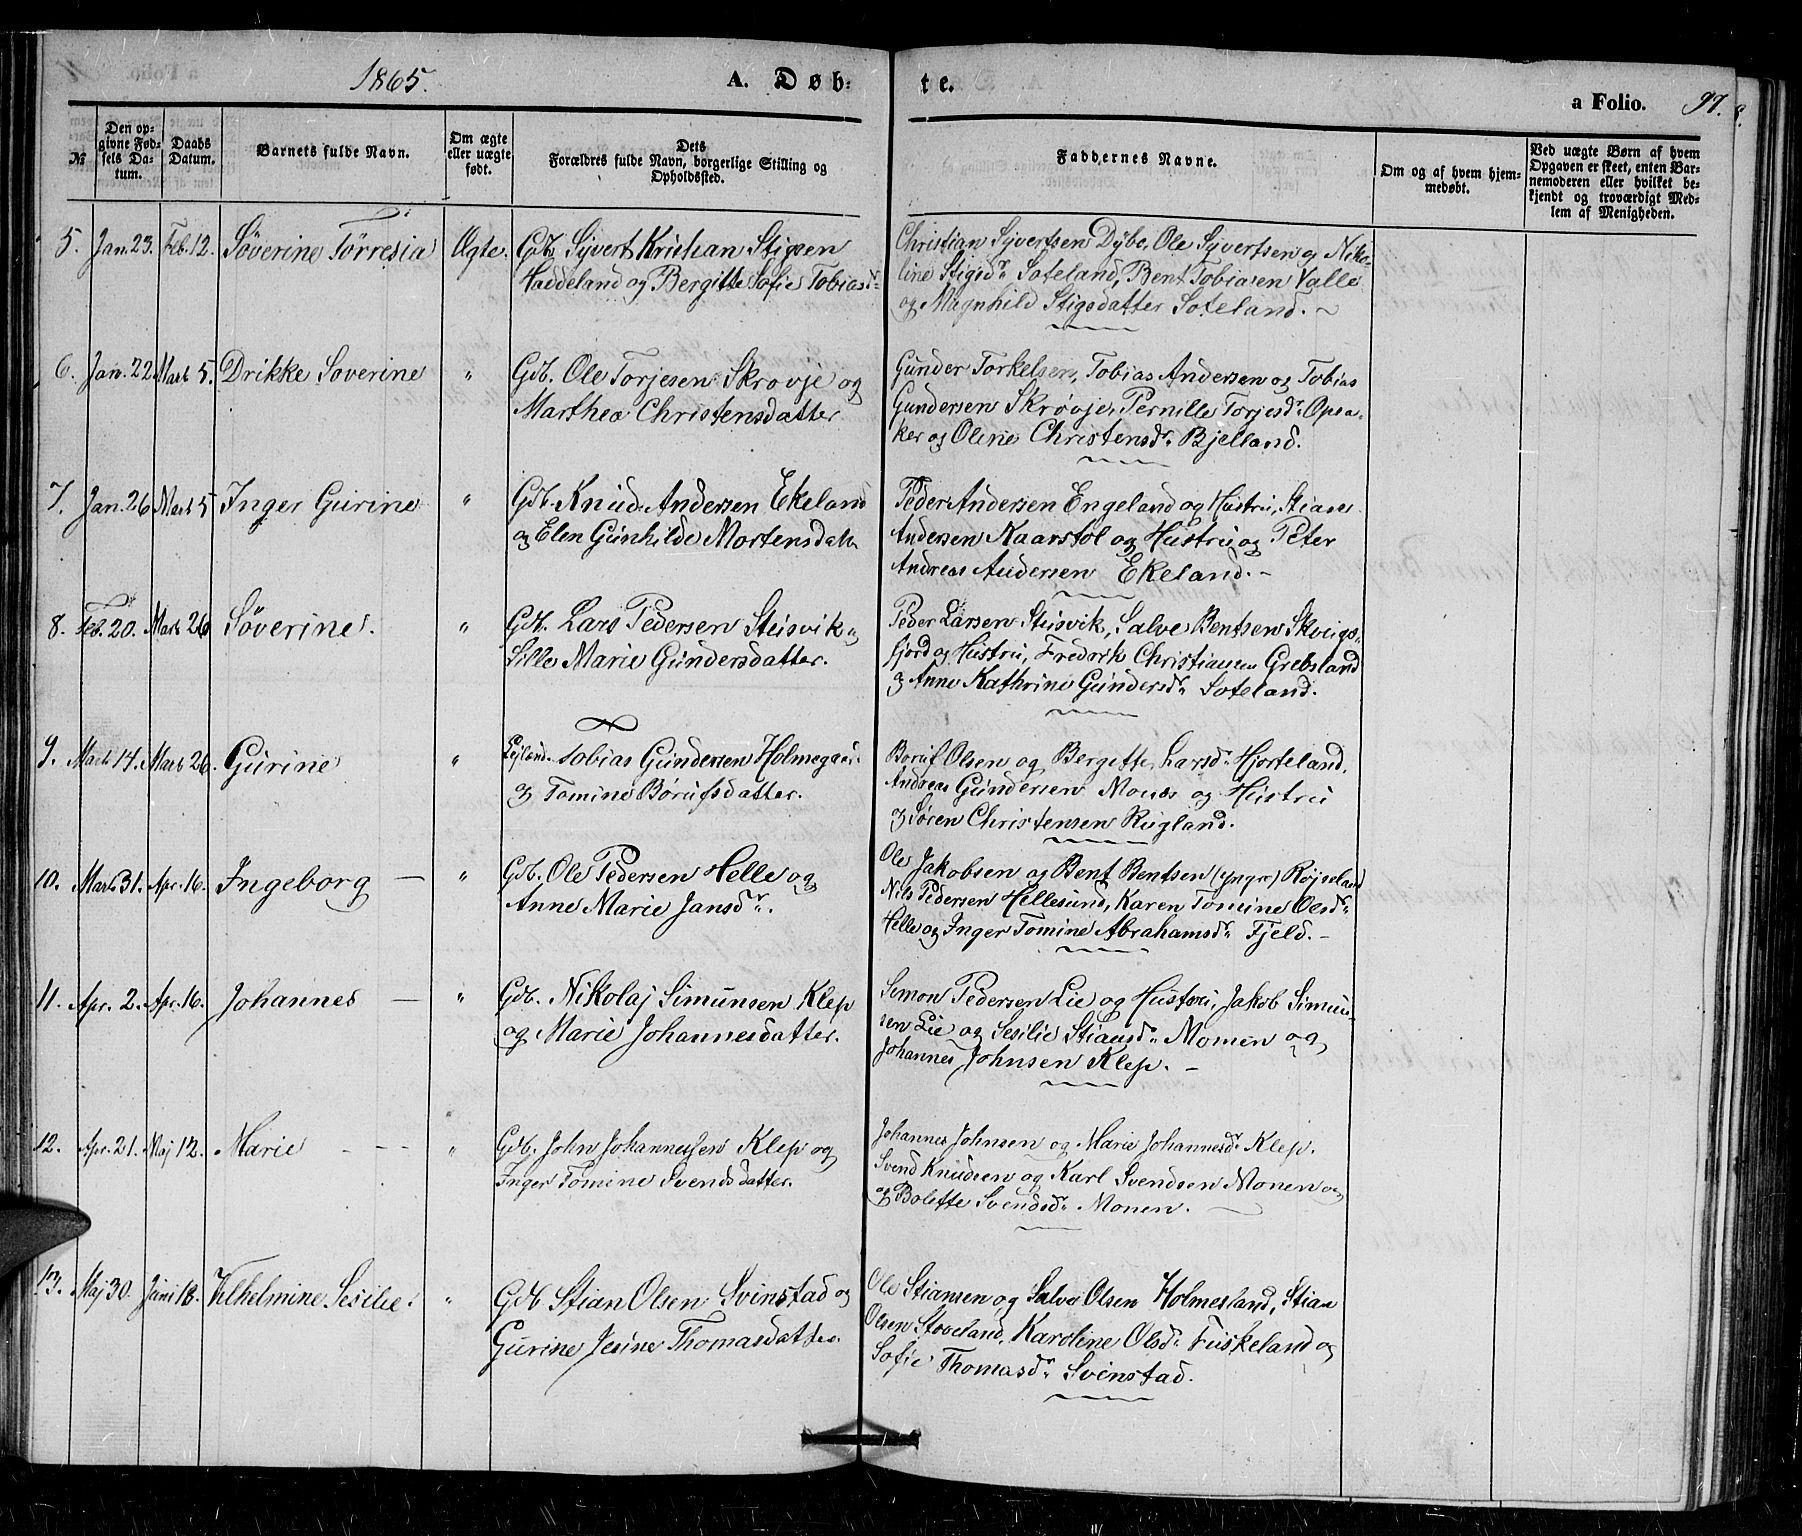 1865. A. Døb-te. a Folio. 97.
№ Den opgivne Fødsels Datum. Daabs Datum. Barnets fulde Navn. Om ægte eller uægte født. Dets Forældres fulde Navn, borgerlige Stilling og Opholdssted. Faddernes Navne. Om og af hvem hjemmedøbt. Ved uægte Børn af hvem Opgaven er skeet, enten Barnemoderen eller hvilket bekjendt og troværdigt Medlem af Menigheden.
5. Jan. 23. Feb. 12. Söverine Törresia Ægte. Gdb. Syvert Krishan Stigsen
Haddeland og Bergitte Sofie Tobiasdr
Christian Syvertsen Dybo, Ole Syvertsen og Niko-
line Stigsdr Soteland, Bent Tobiasen Valle
og Magnhild Stigsdatter Soteland.
6. Jan. 22. Marts 5. Drikke Soverine " Gdb. Ole Torjesen Skrøvje og
Marthea Christensdatter
Gunder Torkelsen, Tobias Andersen og Tobias
Gundersen Skrøvje, Pernille Torjesdr Opsa-
ker og Oline Christensdr Bjelland.
7. Jan. 26 Marts 5 Inger Gurine " Gdb. Knud Andersen Ekeland
og Elen Gunhilde Mortensdatt.
Peder Andersen Engeland og Hustru, Stian
Andersen Kaarstol og Hustru og Peter
Andreas Andersen Ekeland. -
8. Feb. 20. Marts 26 Söverine. " Gdb. Lars Pedersen Steisvik og
Sille Marie Gundersdatter.
Peder Larsen Steisvik, Salve Bentsen Skveigs-
fjord og Hustru, Fredrik Christiansen Grebsland
og Anne Kathrine Gundersdr Soteland.
9. Marts 14. Marts 26. Gurine " Leilænd. Tobias Gundersen Holmegaard
og Tomine Börufsdatter.
Boruf Olsen og Bergette Larsdr Hjorteland,
Andreas Gundersen Monæs og Hustru
og Søren Christensen Rugland.
10. Marts 31. Apr. 16. Ingeborg — " Gdb. Ole Pedersen Helle og
Anne Marie Jansdr.
Ole Jakobsen og Bent Bentsen (yngre) Röjseland
Nils Pedersen Hellesund, Karen Tomine Olsdr
Helle og Inger Tomine Abrahamsdr Fjeld. -
11. Apr. 2. Apr. 16. Johannes — " Gdb. Nikolaj Simunsen Klep
og Marie Johannesdatter.
Semon Pedersen Lie og Hustru, Jakob Simun-
sen Lie og Sesilie Stiansdr Momen og
Johannes Johnsen Klep. -
12. Apr. 21. Maj 12. Marie - - - " Gdb. John Johannessen Klep og
Inger Tomine Svendsdatter.
Johannes Johnsen og Marie Johannesdr Klep.
Svend Knudsen og Karl Svendsen Monen og
og Bolette Svendsdr Monen.
13. Maj 30. Juni 18. Vilhelmine Sesilie. " Gdb Stian Olsen Svinstad og
Gurine Jesine Thomasdatter
Ole Stiansen og Salve Olsen Holmesland, Stian
Olsen Stoveland, Karoline Olsdr Fuskeland og
Sofie Thomasdr Svinstad.